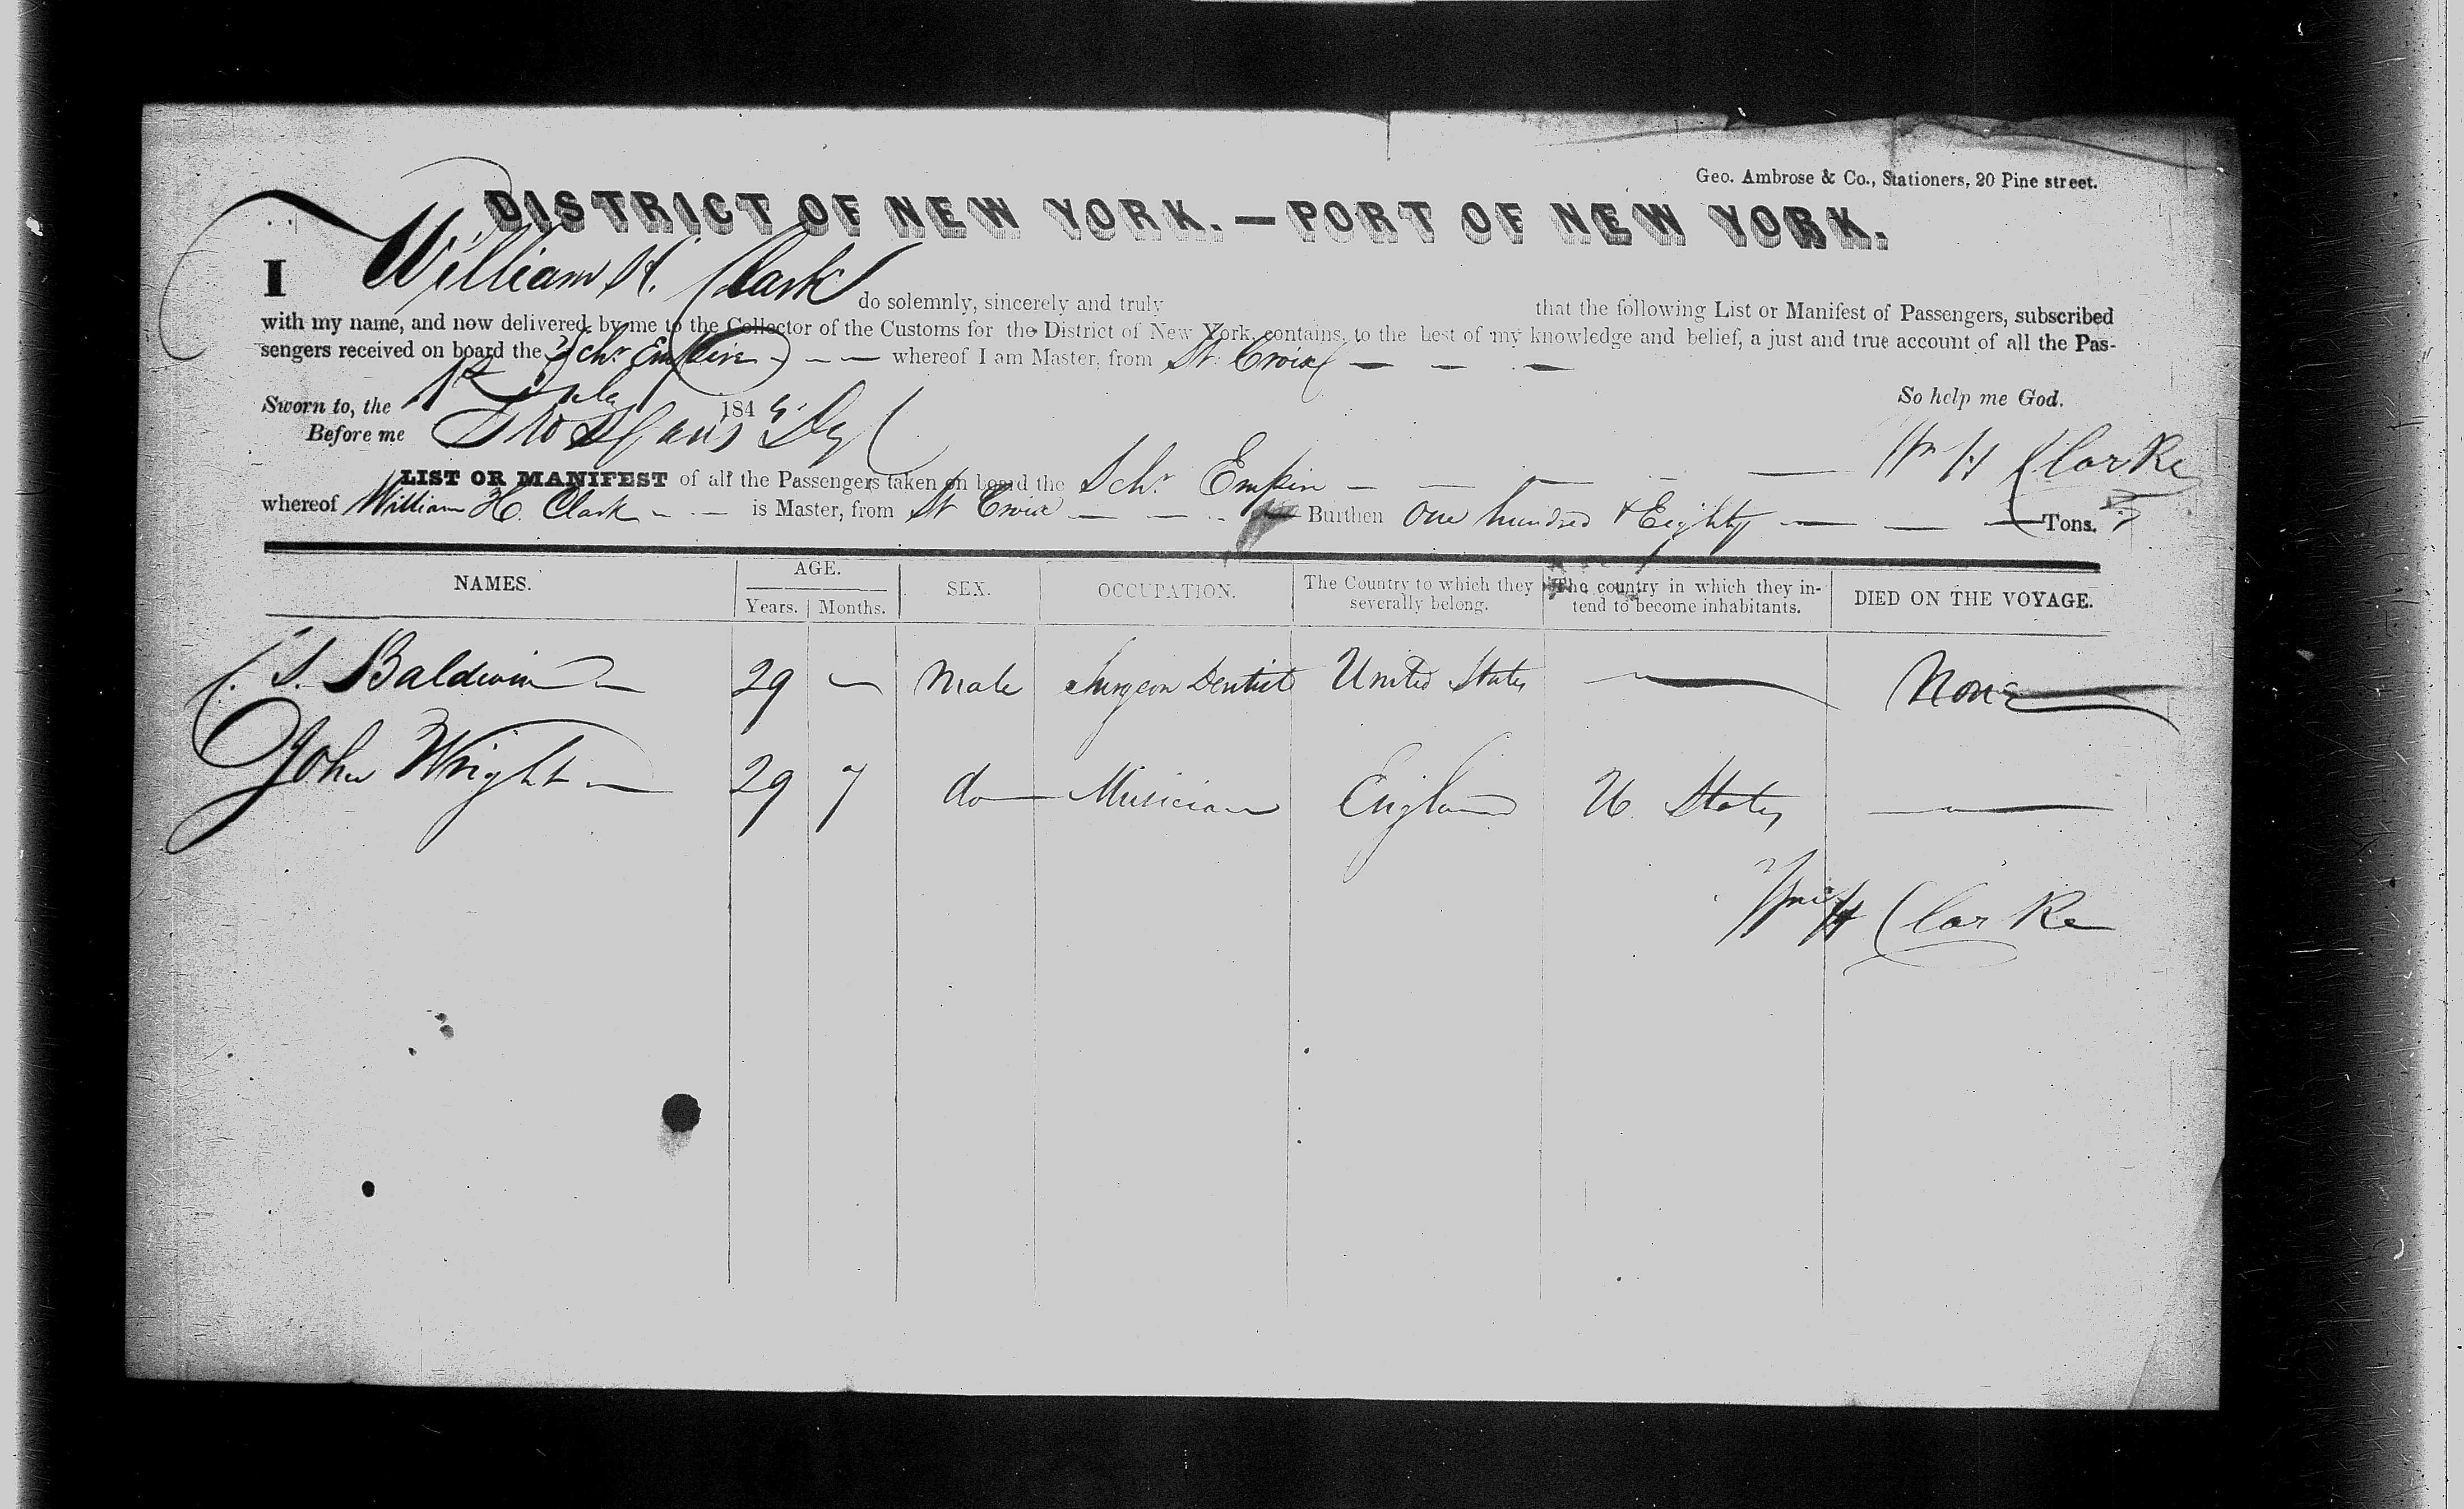 Geo. Ambrose & Co., Stationers, 20 Pine street.
DISTRICT OF NEW YORK.—PORT OF NEW YORK.
I William H. Clark do solemnly, sincerely and truly that the following List or Manifest of Passengers, subscribed
with my name, and now delivered by me to the Collector of the Customs for the District of New York, contains, to the best of my knowledge and belief, a just and true account of all the Pas-
sengers received on board the Schr Empire — — whereof I am Master, from St. Croix — — —
So help me God.
Sworn to, the 1st July 184
Before me
Wm H Clarke
LIST OR MANIFEST of all the Passengers taken on board the Schr Empire — — — — —
whereof William H. Clark — — is Master, from St Croix — — — Burthen One hundred & Eighty — — — Tons.
NAMES. AGE. SEX. OCCUPATION. The Country to which they severally belong. The country in which they in-tend to become inhabitants. DIED ON THE VOYAGE.
Years. Months.
C. S. Baldwin — 29 — Male Surgeon Dentist United States — None
John Wright — 29 7 do — Musician England U. States —
Wm H Clarke